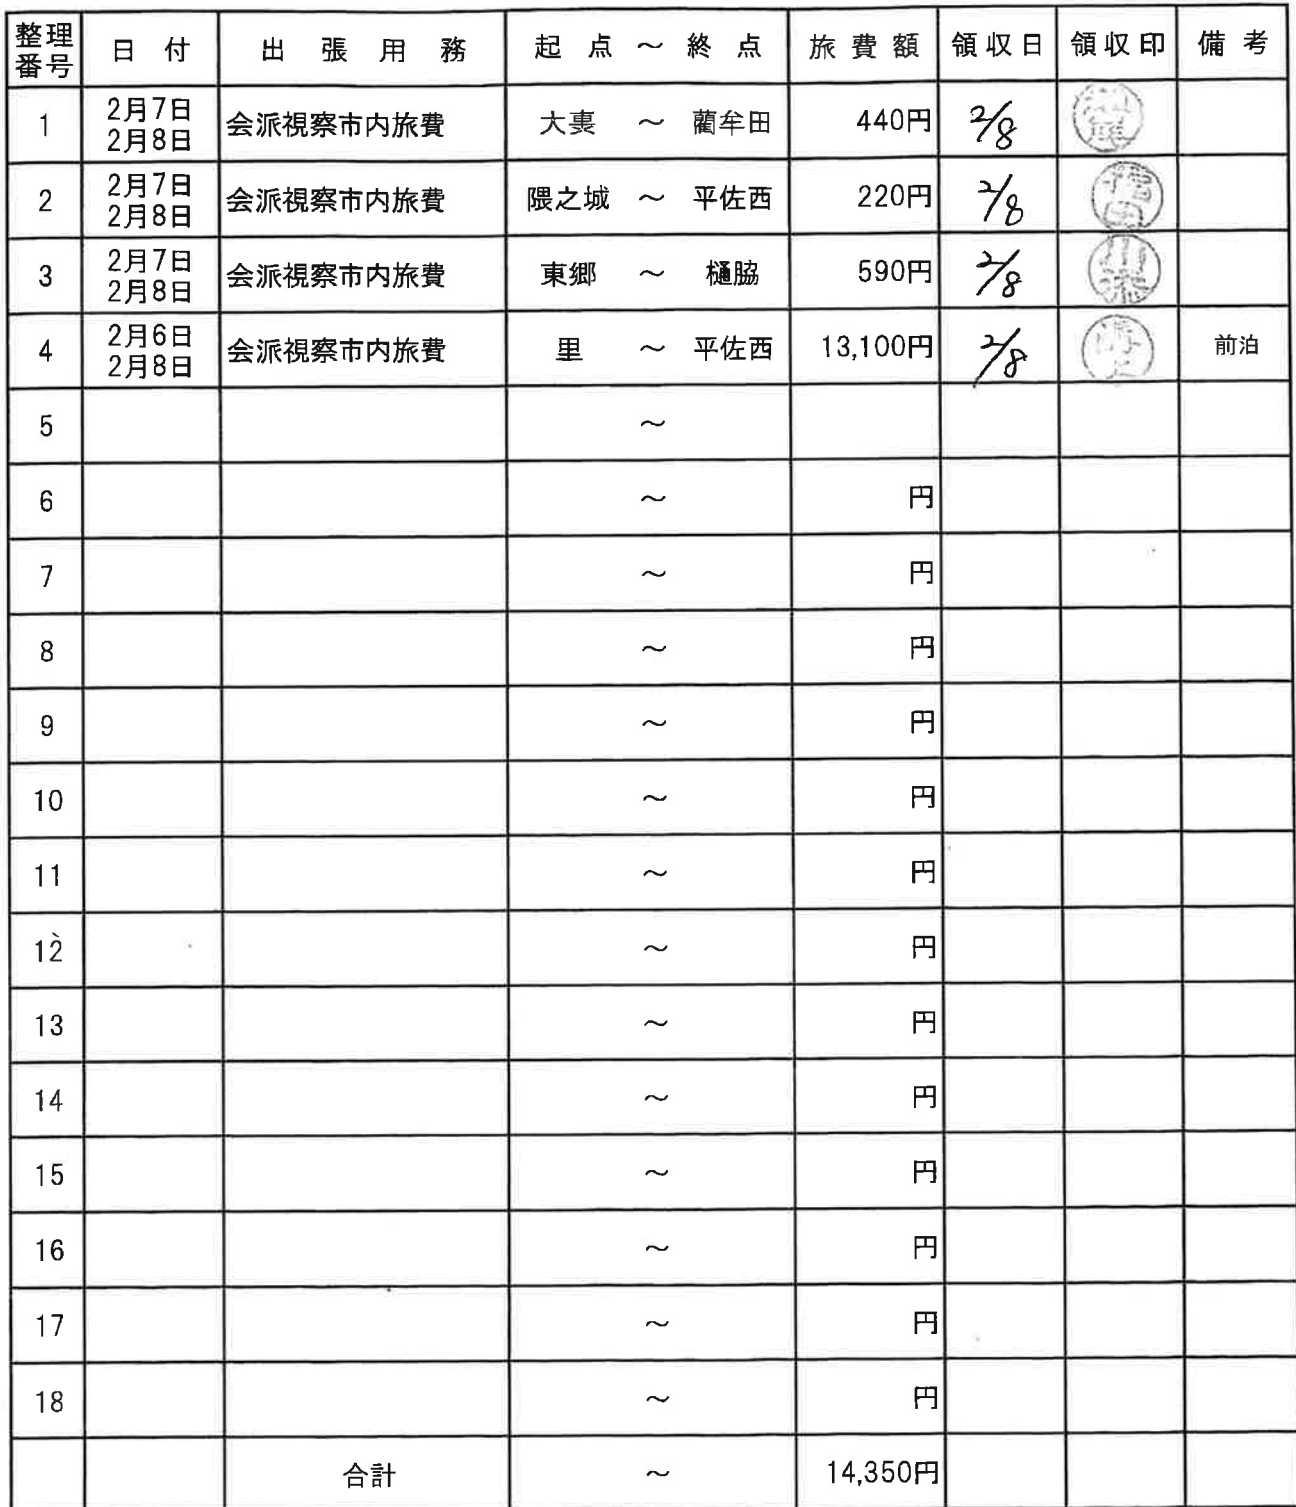 整理番号 日付 出張用務 起点～終点 旅費額 領収日 領収印 備考
1 2月7日 2月8日 会派視察市内旅費 大裏 ～ 藺牟田 440円 2/8
2 2月7日 2月8日 会派視察市内旅費 隈之城 ～ 平佐西 220円 2/8
3 2月7日 2月8日 会派視察市内旅費 東郷 ～ 樋脇 590円 2/8
4 2月6日 2月8日 会派視察市内旅費 里 ～ 平佐西 13,100円 2/8 前泊
5 ～
6 ～ 円
7 ～ 円
8 ～ 円
9 ～ 円
10 ～ 円
11 ～ 円
12 ～ 円
13 ～ 円
14 ～ 円
15 ～ 円
16 ～ 円
17 ～ 円
18 ～ 円
合計 ～ 14,350円